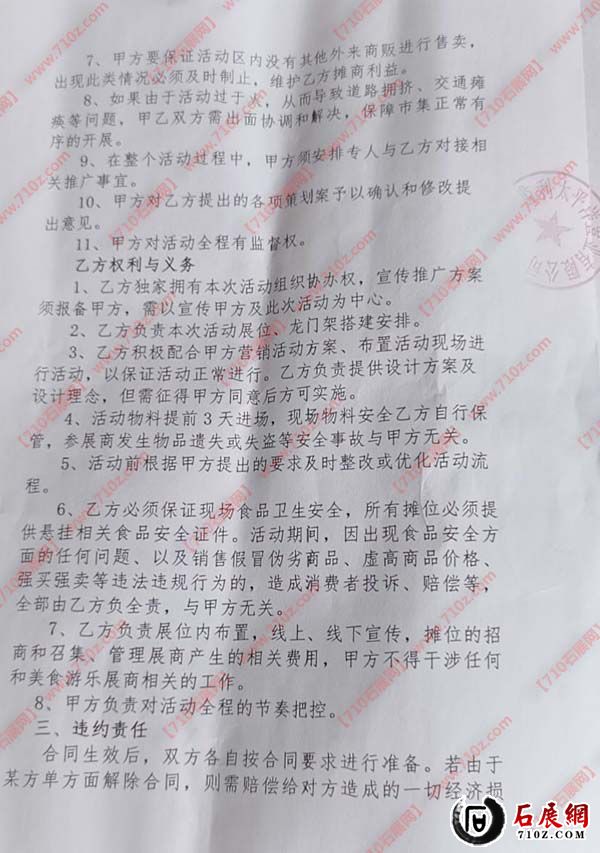 7、甲方要保证活动区内没有其他外来商贩进行售卖，
出现此类情况必须及时制止，维护乙方摊商利益。
8、如果由于活动过于火，从而导致道路拥挤、交通瘫
痪等问题，甲乙双方需出面协调和解决，保障市集正常有
序的开展。
9、在整个活动过程中，甲方须安排专人与乙方对接相
关推广事宜。
10、甲方对乙方提出的各项策划案予以确认和修改提
出意见。
11、甲方对活动全程有监督权。
乙方权利与义务
1、乙方独家拥有本次活动组织协办权，宣传推广方案
须报备甲方，需以宣传甲方及此次活动为中心。
2、乙方负责本次活动展位、龙门架搭建安排。
3、乙方积极配合甲方营销活动方案、布置活动现场进
行活动，以保证活动正常进行。乙方负责提供设计方案及
设计理念，但需征得甲方同意后方可实施。
4、活动物料提前3天进场，现场物料安全乙方自行保
管，参展商发生物品遗失或失盗等安全事故与甲方无关。
5、活动前根据甲方提出的要求及时整改或优化活动流
程。
6、乙方必须保证现场食品卫生安全，所有摊位必须提
供悬挂相关食品安全证件。活动期间，因出现食品安全方
面的任何问题、以及销售假冒伪劣商品、虚高商品价格、
强买强卖等违法违规行为的，造成消费者投诉、赔偿等，
全部由乙方负全责，与甲方无关。
7、乙方负责展位内布置，线上、线下宣传，摊位的招
商和召集、管理展商产生的相关费用，甲方不得干涉任何
和美食游乐展商相关的工作。
8、甲方负责对活动全程的节奏把控。
三、违约责任
合同生效后，双方各自按合同要求进行准备。若由于
某方单方面解除合同，则需赔偿给对方造成的一切经济损
利太平洋
有限公司
【710石展网】www.710z.com
石展網
710Z.COM